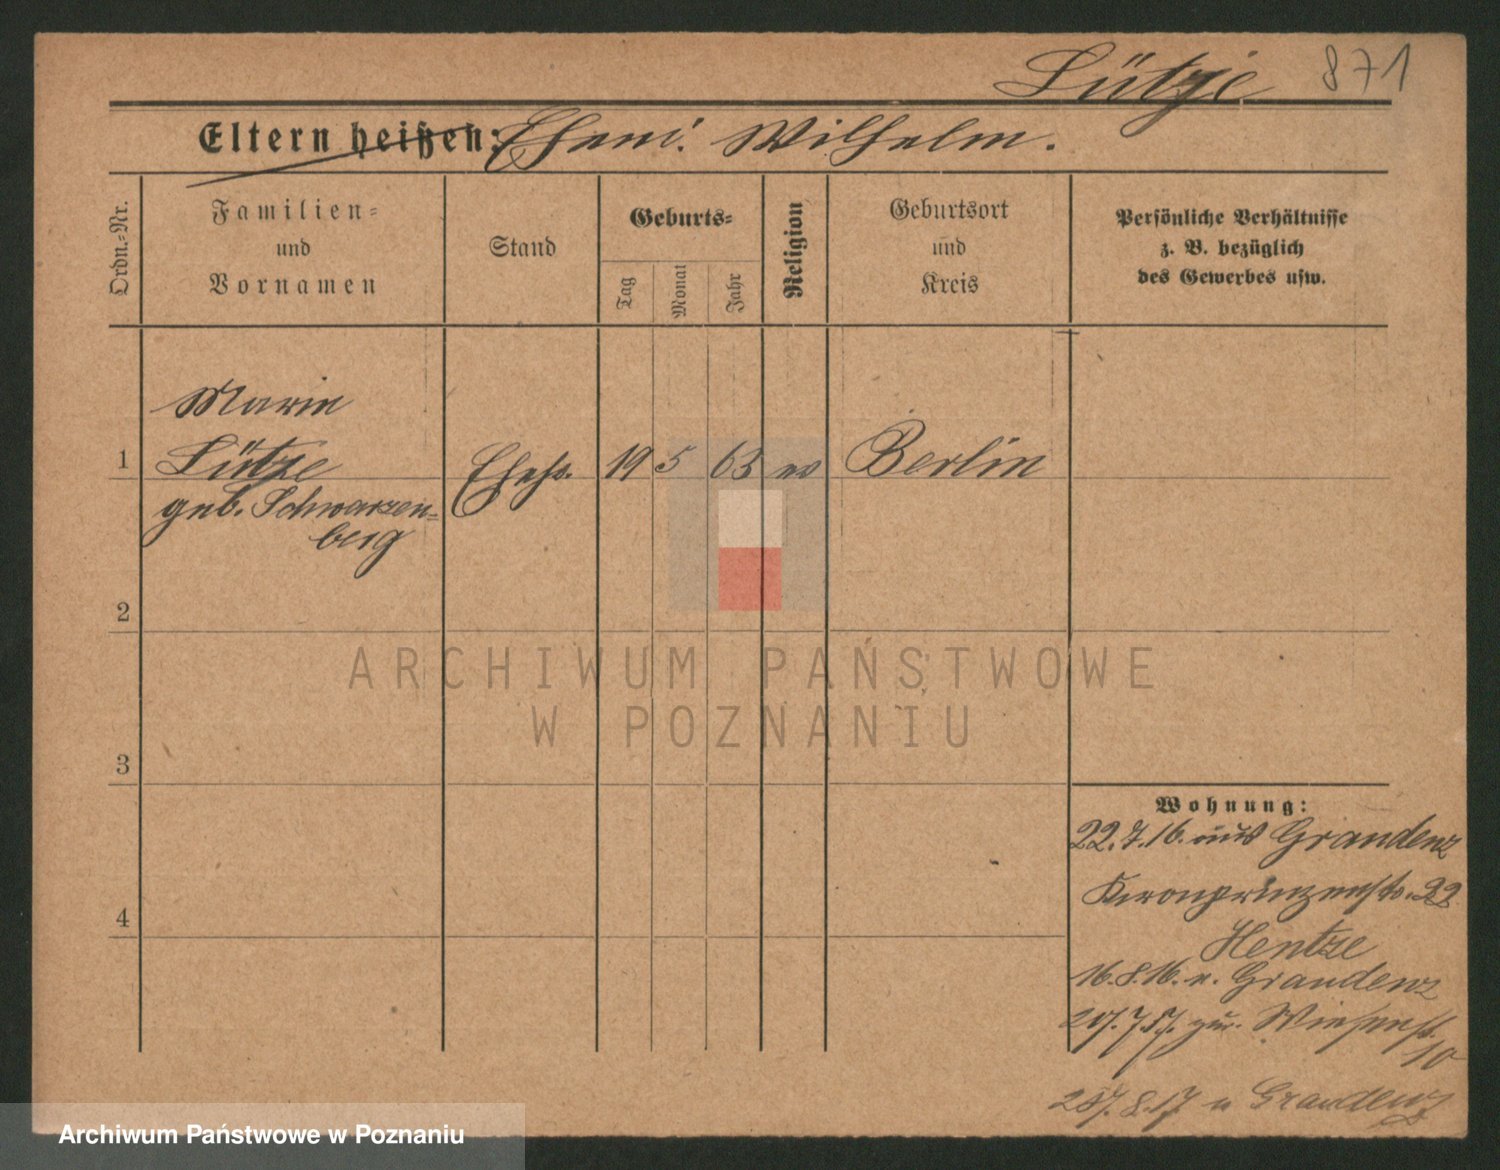 Lütze 871
Eltern heißen: Ehem. Wilhelm.
Ordn.-Nr.
Familien-
und
Vornamen
Stand
Geburts-
Tag
Monat
Jahr
Religion
Geburtsort
und
Kreis
Persönliche Verhältnisse
z. B. bezüglich
des Gewerbes usw.
Marie
1 Lütze Ehefr. 19 5 63 ev Berlin
geb. Schwarzen-
berg
2
ARCHIWUM PAŃSTWOWE
W POZNANIU
3
Wohnung:
22.7.16. aus Graudenz
4 Kronprinzenstr. 22
Hentze
16.8.16. n. Graudenz
7.17. zur. Wiesenstr.
10
8.17 n Graudenz
Archiwum Państwowe w Poznaniu